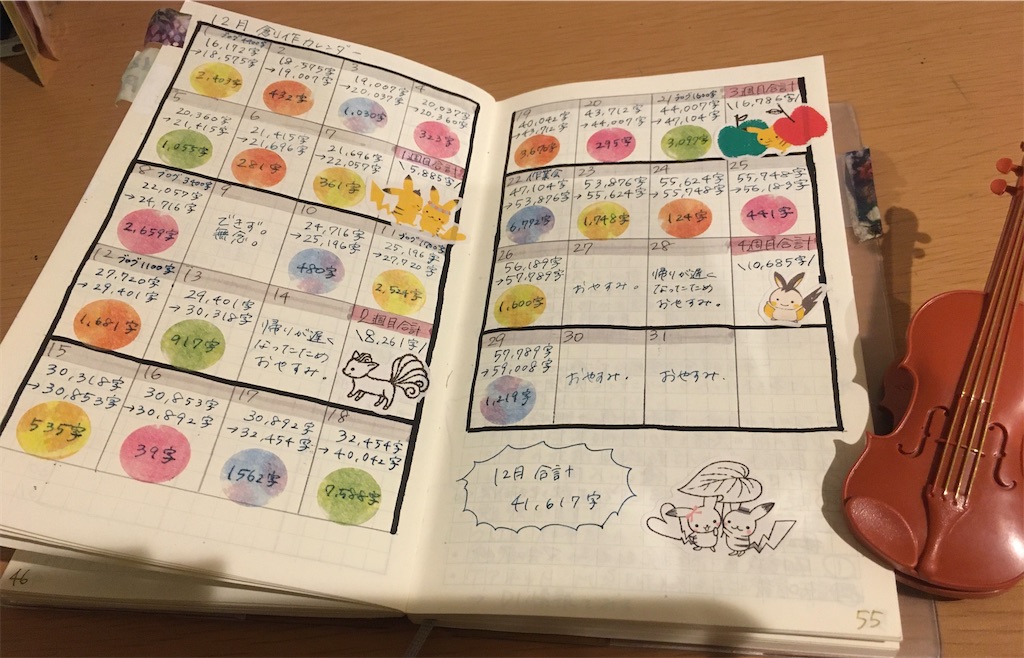 12月 創作カレンダー
1 ブログ4400字
16,172字
→18,575字
2,403字
2
18,575字
→19,007字
432字
3
19,007字
→20,037字
1,030字
4
20,037字
→20,360字
323字
5
20,360字
→21,415字
1,055字
6
21,415字
→21,696字
281字
7
21,696字
→22,057字
361字
1週目合計
\5,885字/
8 ブログ3400字
22,057字
→24,716字
2,659字
9
できず。
無念。
10
24,716字
→25,196字
480字
11 ブログ1700字
25,196字
→27,720字
2,524字
12 ブログ1100字
27,720字
→29,401字
1,681字
13
29,401字
→30,318字
917字
14
帰りが遅く
なってたため
おやすみ。
2週目合計
\8,261字/
15
30,318字
→30,853字
535字
16
30,853字
→30,892字
39字
17
30,892字
→32,454字
1562字
18
32,454字
→40,042字
7,588字
19
40,042字
→43,712字
3,670字
20
43,712字
→44,007字
295字
21 ブログ1600字
44,007字
→47,104字
3,097字
3週目合計
\16,786字/
22 作業会
47,104字
→53,876字
6,772字
23
53,876字
→55,624字
1,748字
24
55,624字
→55,748字
124字
25
55,748字
→56,189字
441字
26
56,189字
→57,789字
1,600字
27
おやすみ。
28
帰りが遅く
なったため
おやすみ。
4週目合計
\10,685字/
29
57,789字
→59,008字
1,219字
30
おやすみ。
31
おやすみ。
12月 合計
41,617字
46
55